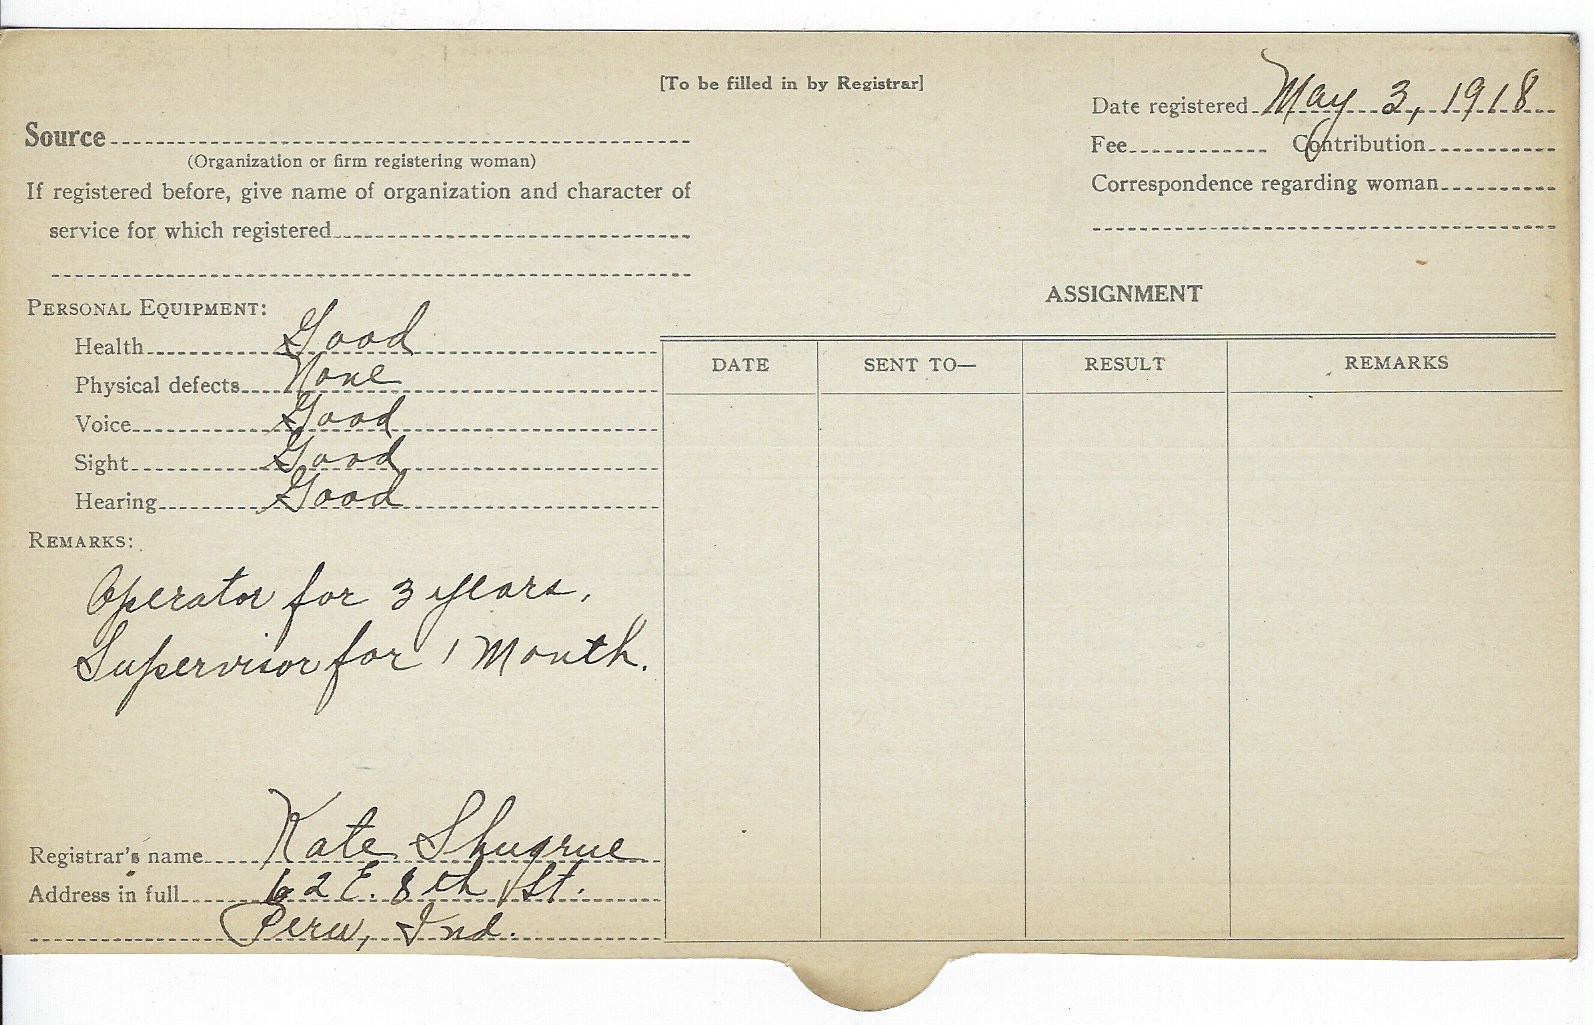 [To be filled in by Registrar]
Date registered May 3, 1918
Source
Fee Contribution
(Organization or firm registering woman)
Correspondence regarding woman
If registered before, give name of organization and character of
service for which registered
ASSIGNMENT
PERSONAL EQUIPMENT:
Health Good
Physical defects None
Voice Good
Sight Good
Hearing Good
DATE SENT TO— RESULT REMARKS
REMARKS:
Operator for 3 years.
Supervisor for 1 Month.
Registrar's name Kate Shugrue
Address in full 62 E. 8th St.
Peru, Ind.